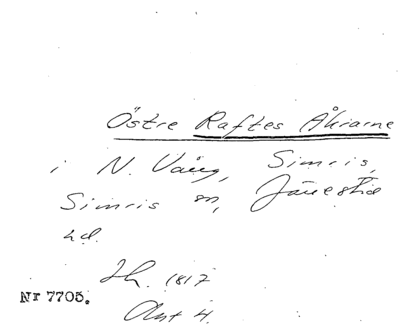 Östre Raftes Åkrarne
i N. Vång, Simris,
Simris sn, Järrestad
hd.
Lh. 1817
Akt 4.
Nr 7705.